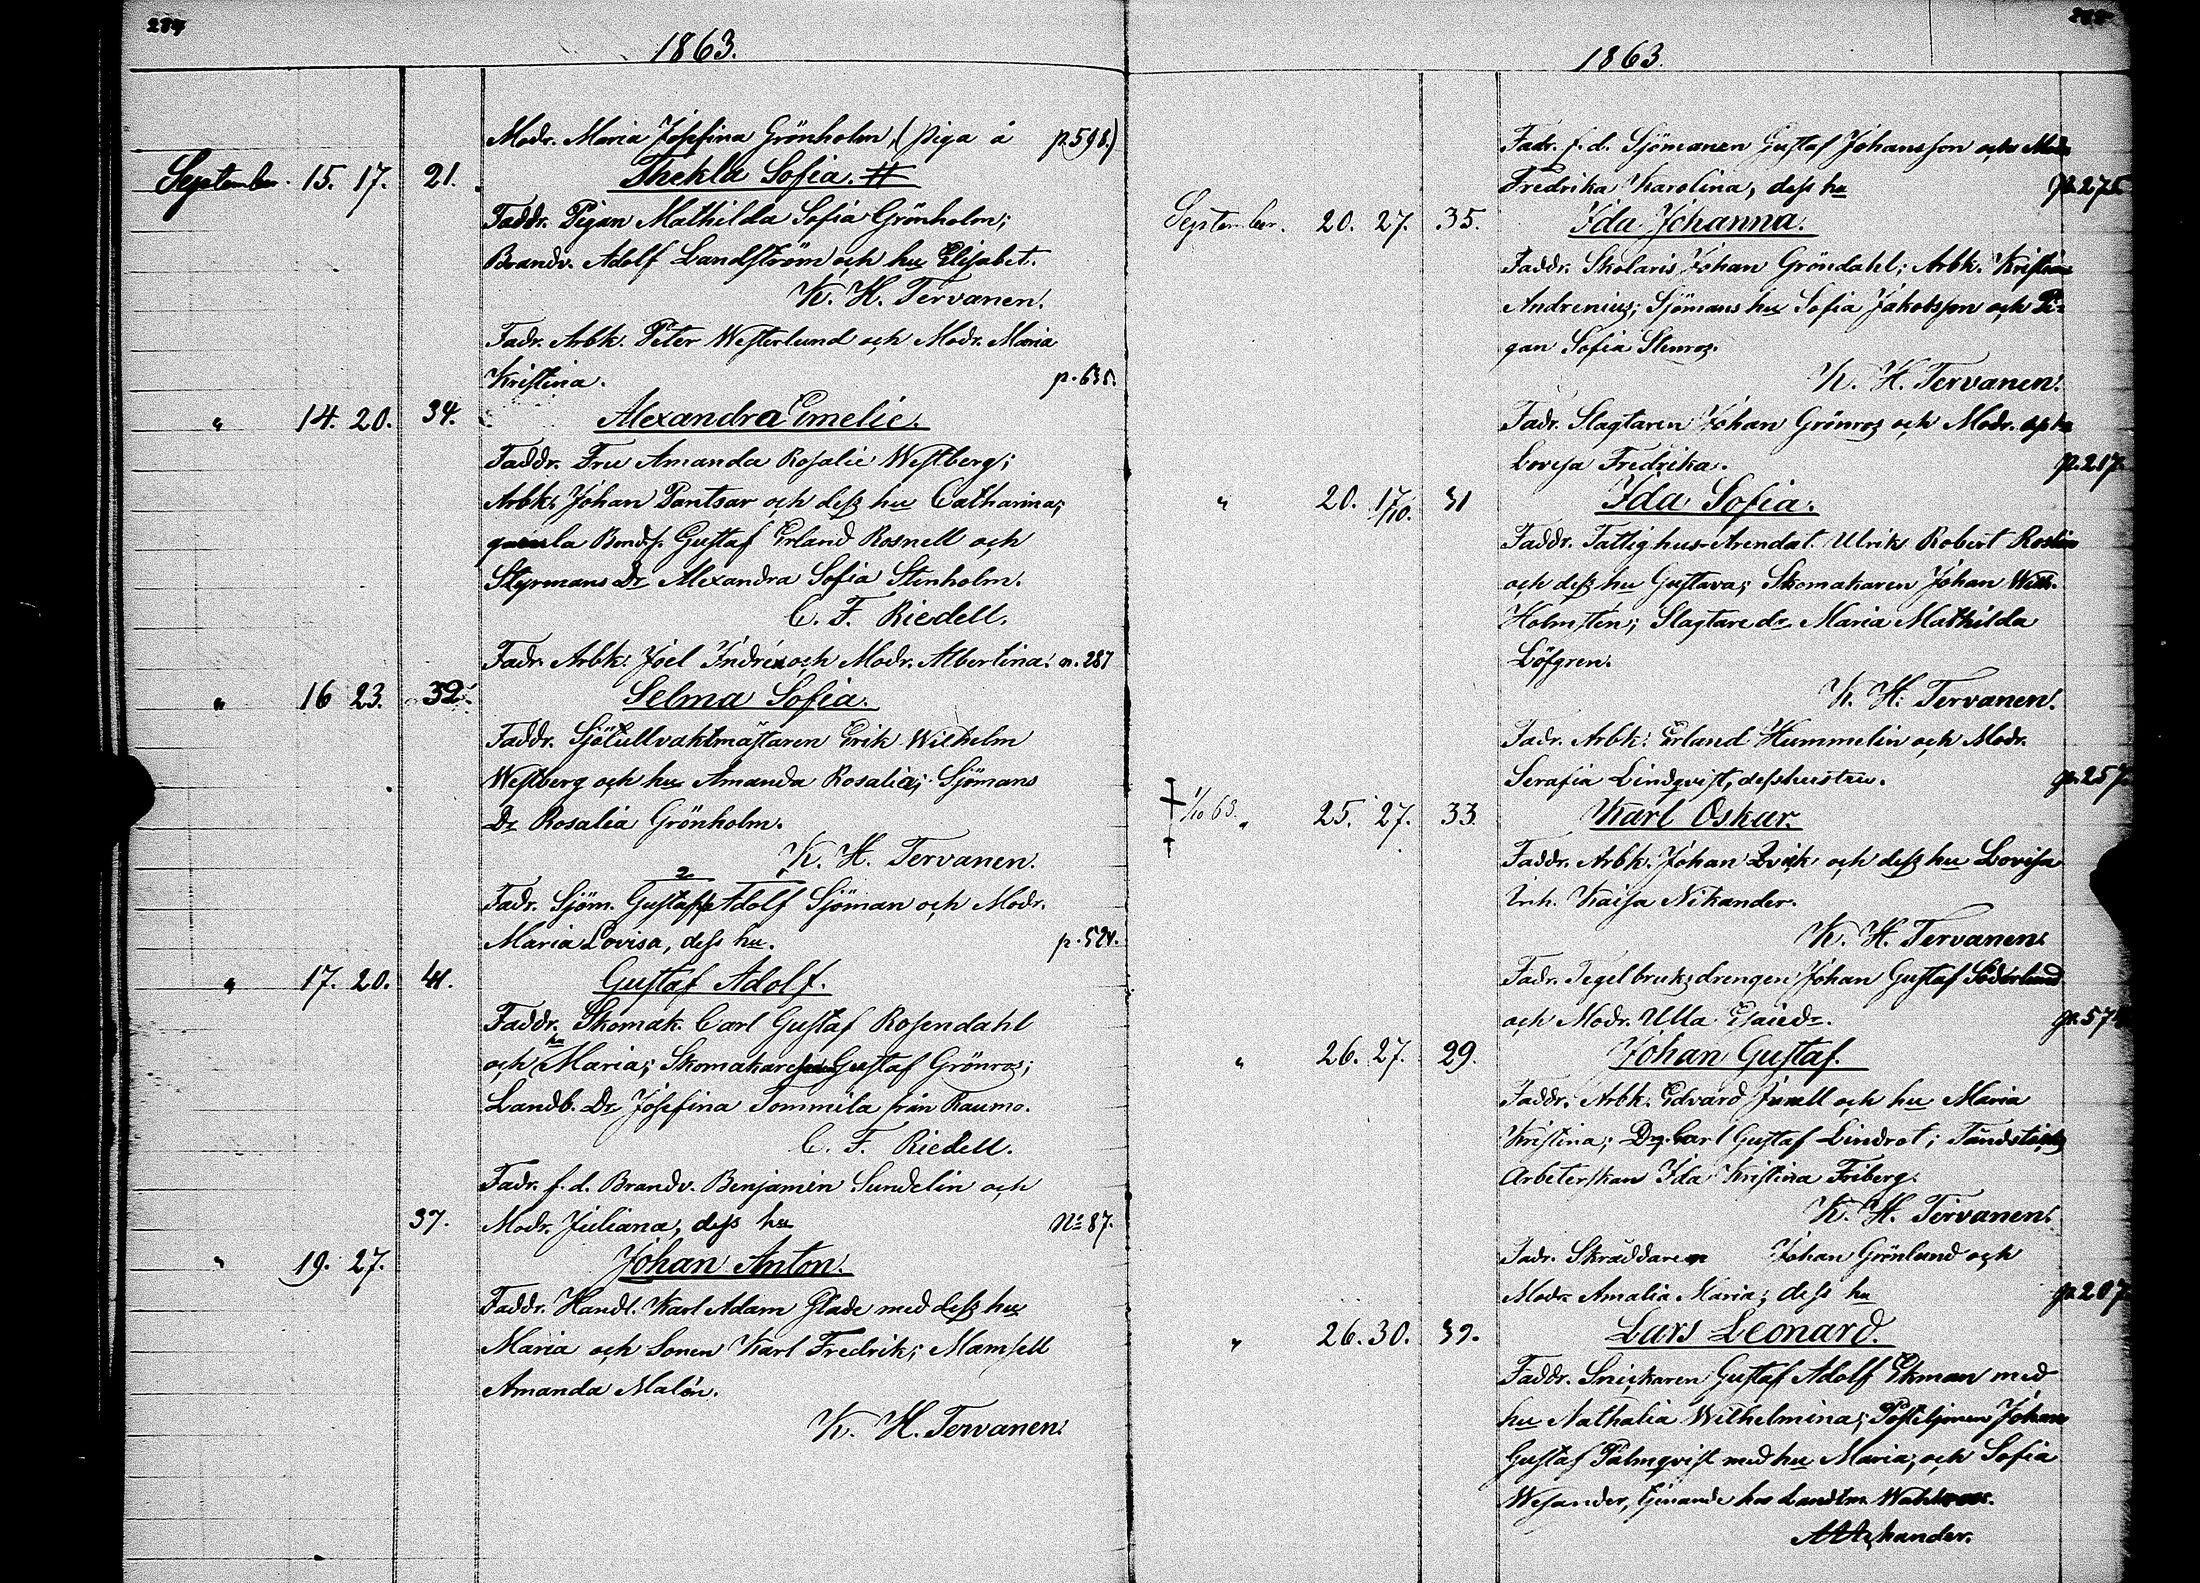 284
1863.
Modr. Maria Josefina Grönholm, (piga å p. 598.)
September. 15. 17. 21. Thekla Sofia. #
Faddr. Pigan Mathilda Sofia Grönholm;
Brandv. Adolf Landström och hu Elisabet.
K. H. Tervanen.
Fadr. Arbk. Peter Westerlund och Modr. Maria
Kristina. p. 635.
" 14. 20. 34. Alexandra Emelie.
Faddr. Fru Amanda Rosalie Westberg;
Arbk. Johan Pantsar och dess hu Catharina;
gamla Bonds. Gustaf Erland Rosnell och
Styrmans Dr Alexandra Sofia Stenholm.
C. F. Riedell.
Fadr. Arbk. Joel Indrén och Modr. Albertina. n. 287
" 16 23. 32. Selma Sofia.
Faddr. Sjötullvaktmästaren Erik Wilhelm
Westberg och hu Amanda Rosalia; Sjömans
Dr Rosalia Grönholm.
K. H. Tervanen.
Fadr. Sjöm. Gustaf Adolf Sjöman och Modr.
Maria Lovisa, dess hu. p. 524.
" 17. 20. 41. Gustaf Adolf.
Faddr. Skomak. Carl Gustaf Rosendahl
och hu Maria; Skomakare Gustaf Grönros;
Landb. Dr Josefina Tommila från Raumo.
C. F. Riedell.
Fadr. f. d. Brandv. Benjamin Sundelin och
37. Modr. Juliana, dess hu No 87.
" 19. 27. Johan Anton.
Faddr. Handl. Karl Adam Glade med dess hu
Maria och Sonen Karl Fredrik; Mamsell
Amanda Malén.
K. H. Tervanen.
285
1863.
Fadr. f. d. Sjömanen Gustaf Johansson och Modr
Fredrika Karolina, dess hu p. 275
September. 20. 27. 35. Ida Johanna.
Faddr. Skolaris Johan Gröndahl; Arbk. Kristian
Andrenius; Sjömans hu Sofia Jakobsson och Pi-
gan Sofia Stenros.
K. H. Tervanen.
Fadr. Slagtaren Johan Grönros och Modr.
Lovisa Fredrika. p. 217.
" 20. 17/10. 31 Ida Sofia.
Faddr. Fattighus-Arendat. Ulrik Robert Roslin
och dess hu Gustava; Skomakaren Johan Wilh.
Holmstén; Slagtare dr Maria Mathilda
Löfgren.
K. H. Tervanen.
Fadr. Arbk. Erland Hummelin och Modr.
Serafia Lindqvist, dess hustru. p. 257.
† 1/10 63. " 25. 27. 33. Karl Oskar.
Faddr. Arbk. Johan Qvick och dess hu Lovisa
Inh. Kaisa Nikander.
K. H. Tervanen.
Fadr. Tegelbruksdrengen Johan Gustaf Söderlund
och Modr. Ulla Esaiedr. p. 574
" 26. 27. 29. Johan Gustaf.
Faddr. Arbk. Edvard Jusell och hu Maria
Kristina; Drg. Carl Gustaf Lindrot; Tändsticks
Arbeterskan Ida Kristina Friberg.
K. H. Tervanen.
Fadr. Skräddaren Johan Grönlund och
Modr. Amalia Maria, dess hu p. 207
" 26. 30. 39. Lars Leonard.
Faddr. Snickaren Gustaf Adolf Ekman med
hu Nathalia Wilhelmina; Postiljonen Johan
Gustaf Palmqvist med hu Maria; och Sofia
Wesander, tjenande hos Landtm.